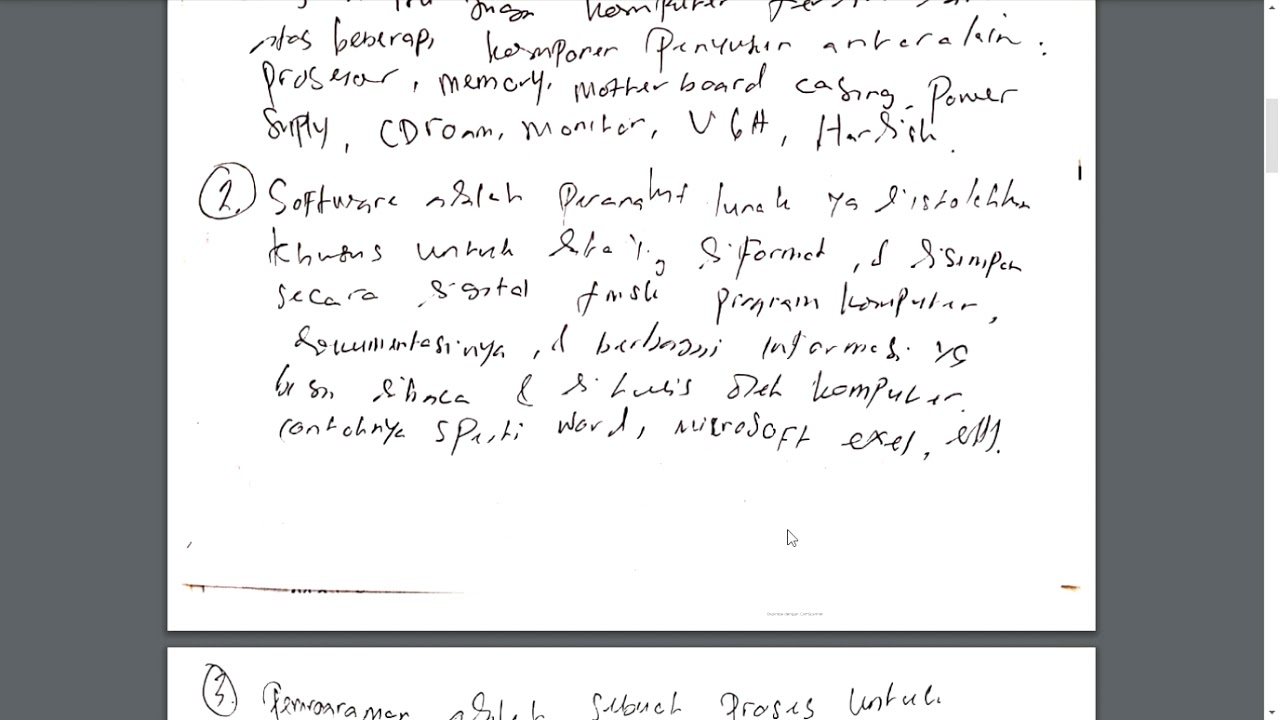 komputer
atas beberapa komponen Penyusun antara lain :
Prosesor, memory, motherboard casing, Power
Suply, CDroom, Monitor, VGA, Hardisk.
2. Software adalah Perangkat lunak yg diistolahkan
khusus untuk data yg diformat, & disimpan
secara digital program komputer,
dokumentasinya, & berbagai informasi yg
bisa dibaca & ditulis oleh komputer.
contohnya sperti word, microsoft exel, dll.
3. Pemrograman adalah sebuah Proses untuk